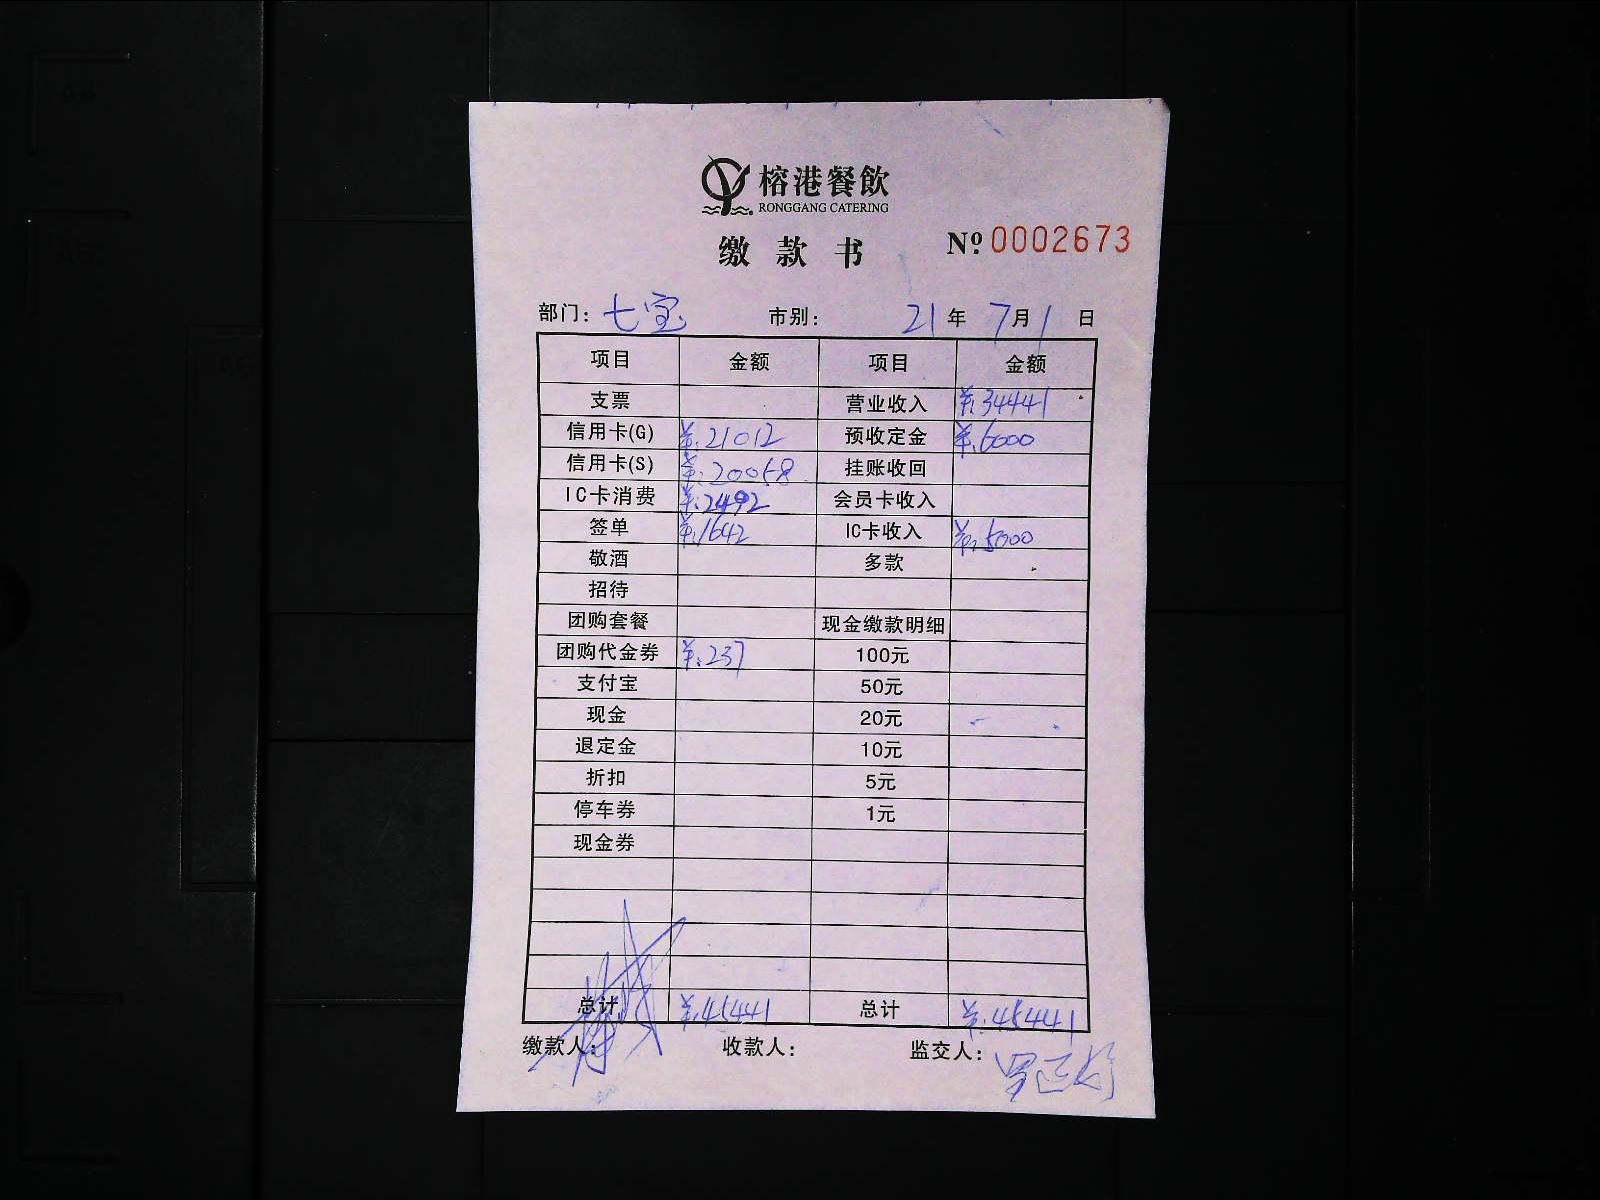 榕港餐飲
RONGGANG CATERING
缴款书 №0002673
部门: 七宝 市别: 21年 7月1日
项目 金额 项目 金额
支票 营业收入 ¥:34441
信用卡(G) ¥:21012 预收定金 ¥:6000
信用卡(S) ¥:20058 挂账收回
IC卡消费 ¥:2492 会员卡收入
签单 ¥:1642 IC卡收入 ¥:5000
敬酒 多款
招待
团购套餐 现金缴款明细
团购代金券 ¥:237 100元
支付宝 50元
现金 20元
退定金 10元
折扣 5元
停车券 1元
现金券
总计 ¥:45441 总计 ¥:45441
缴款人: 收款人: 监交人: